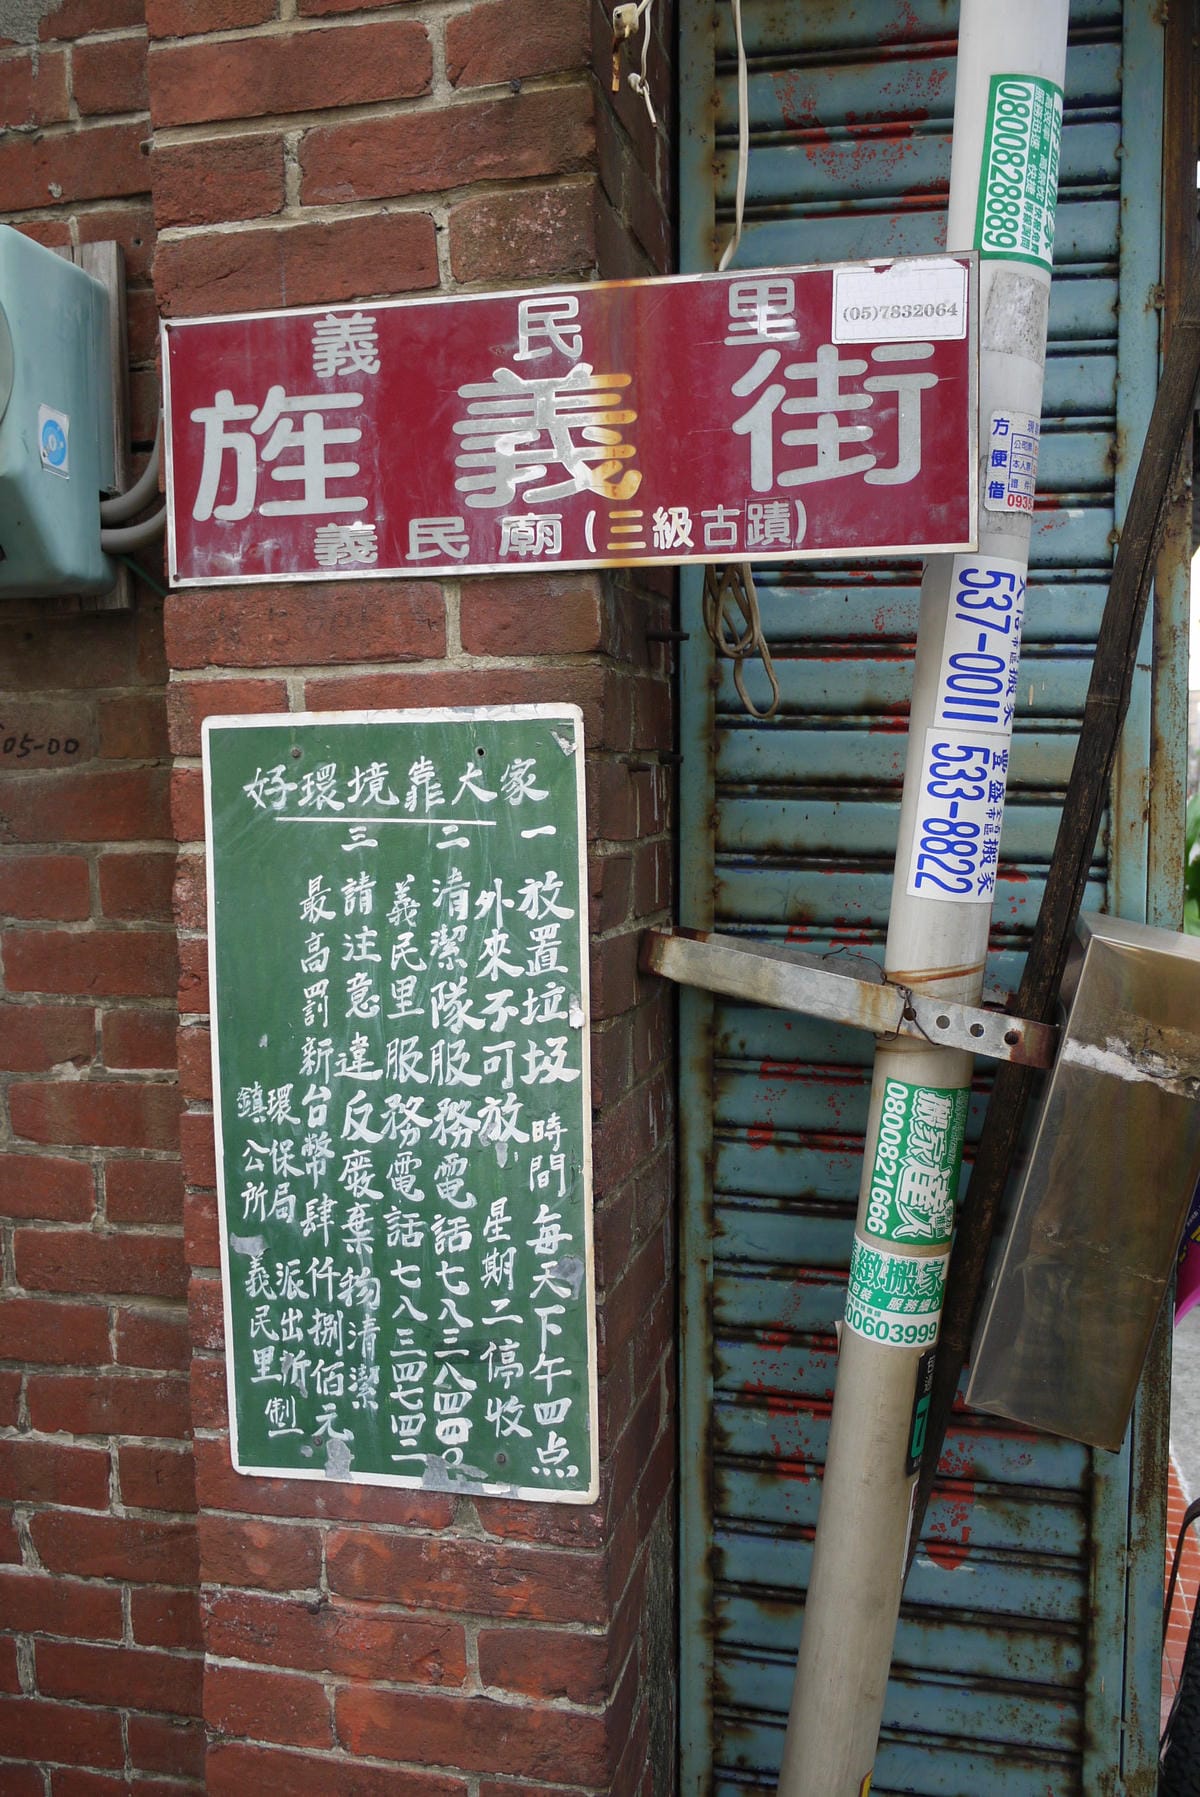 義民里
(05)7832064
旌義街
義民廟(三級古蹟)
好環境靠大家
一 放置垃圾時間每天下午四点
外來不可放 星期二停收
二 清潔隊服務電話七八三八四四〇
義民里服務電話七八三四七四二
三 請注意違反廢棄物清潔
最高罰新台幣肆仟捌佰元
環保局 派出所
鎮公所 義民里 製
0800828889
方便借
0935
537-0011
市區搬家
533-8822
市區搬家
搬家達人
0800821666
緻搬家
包裝·服務細心
00603999
05-00